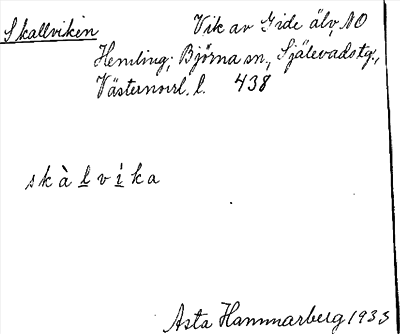 Skallviken Vik av Gide älv, NO
Hemling, Björna sn, Själevads tg.,
Västernorrl. l. 438
skàlvika
Asta Hammarberg 1935